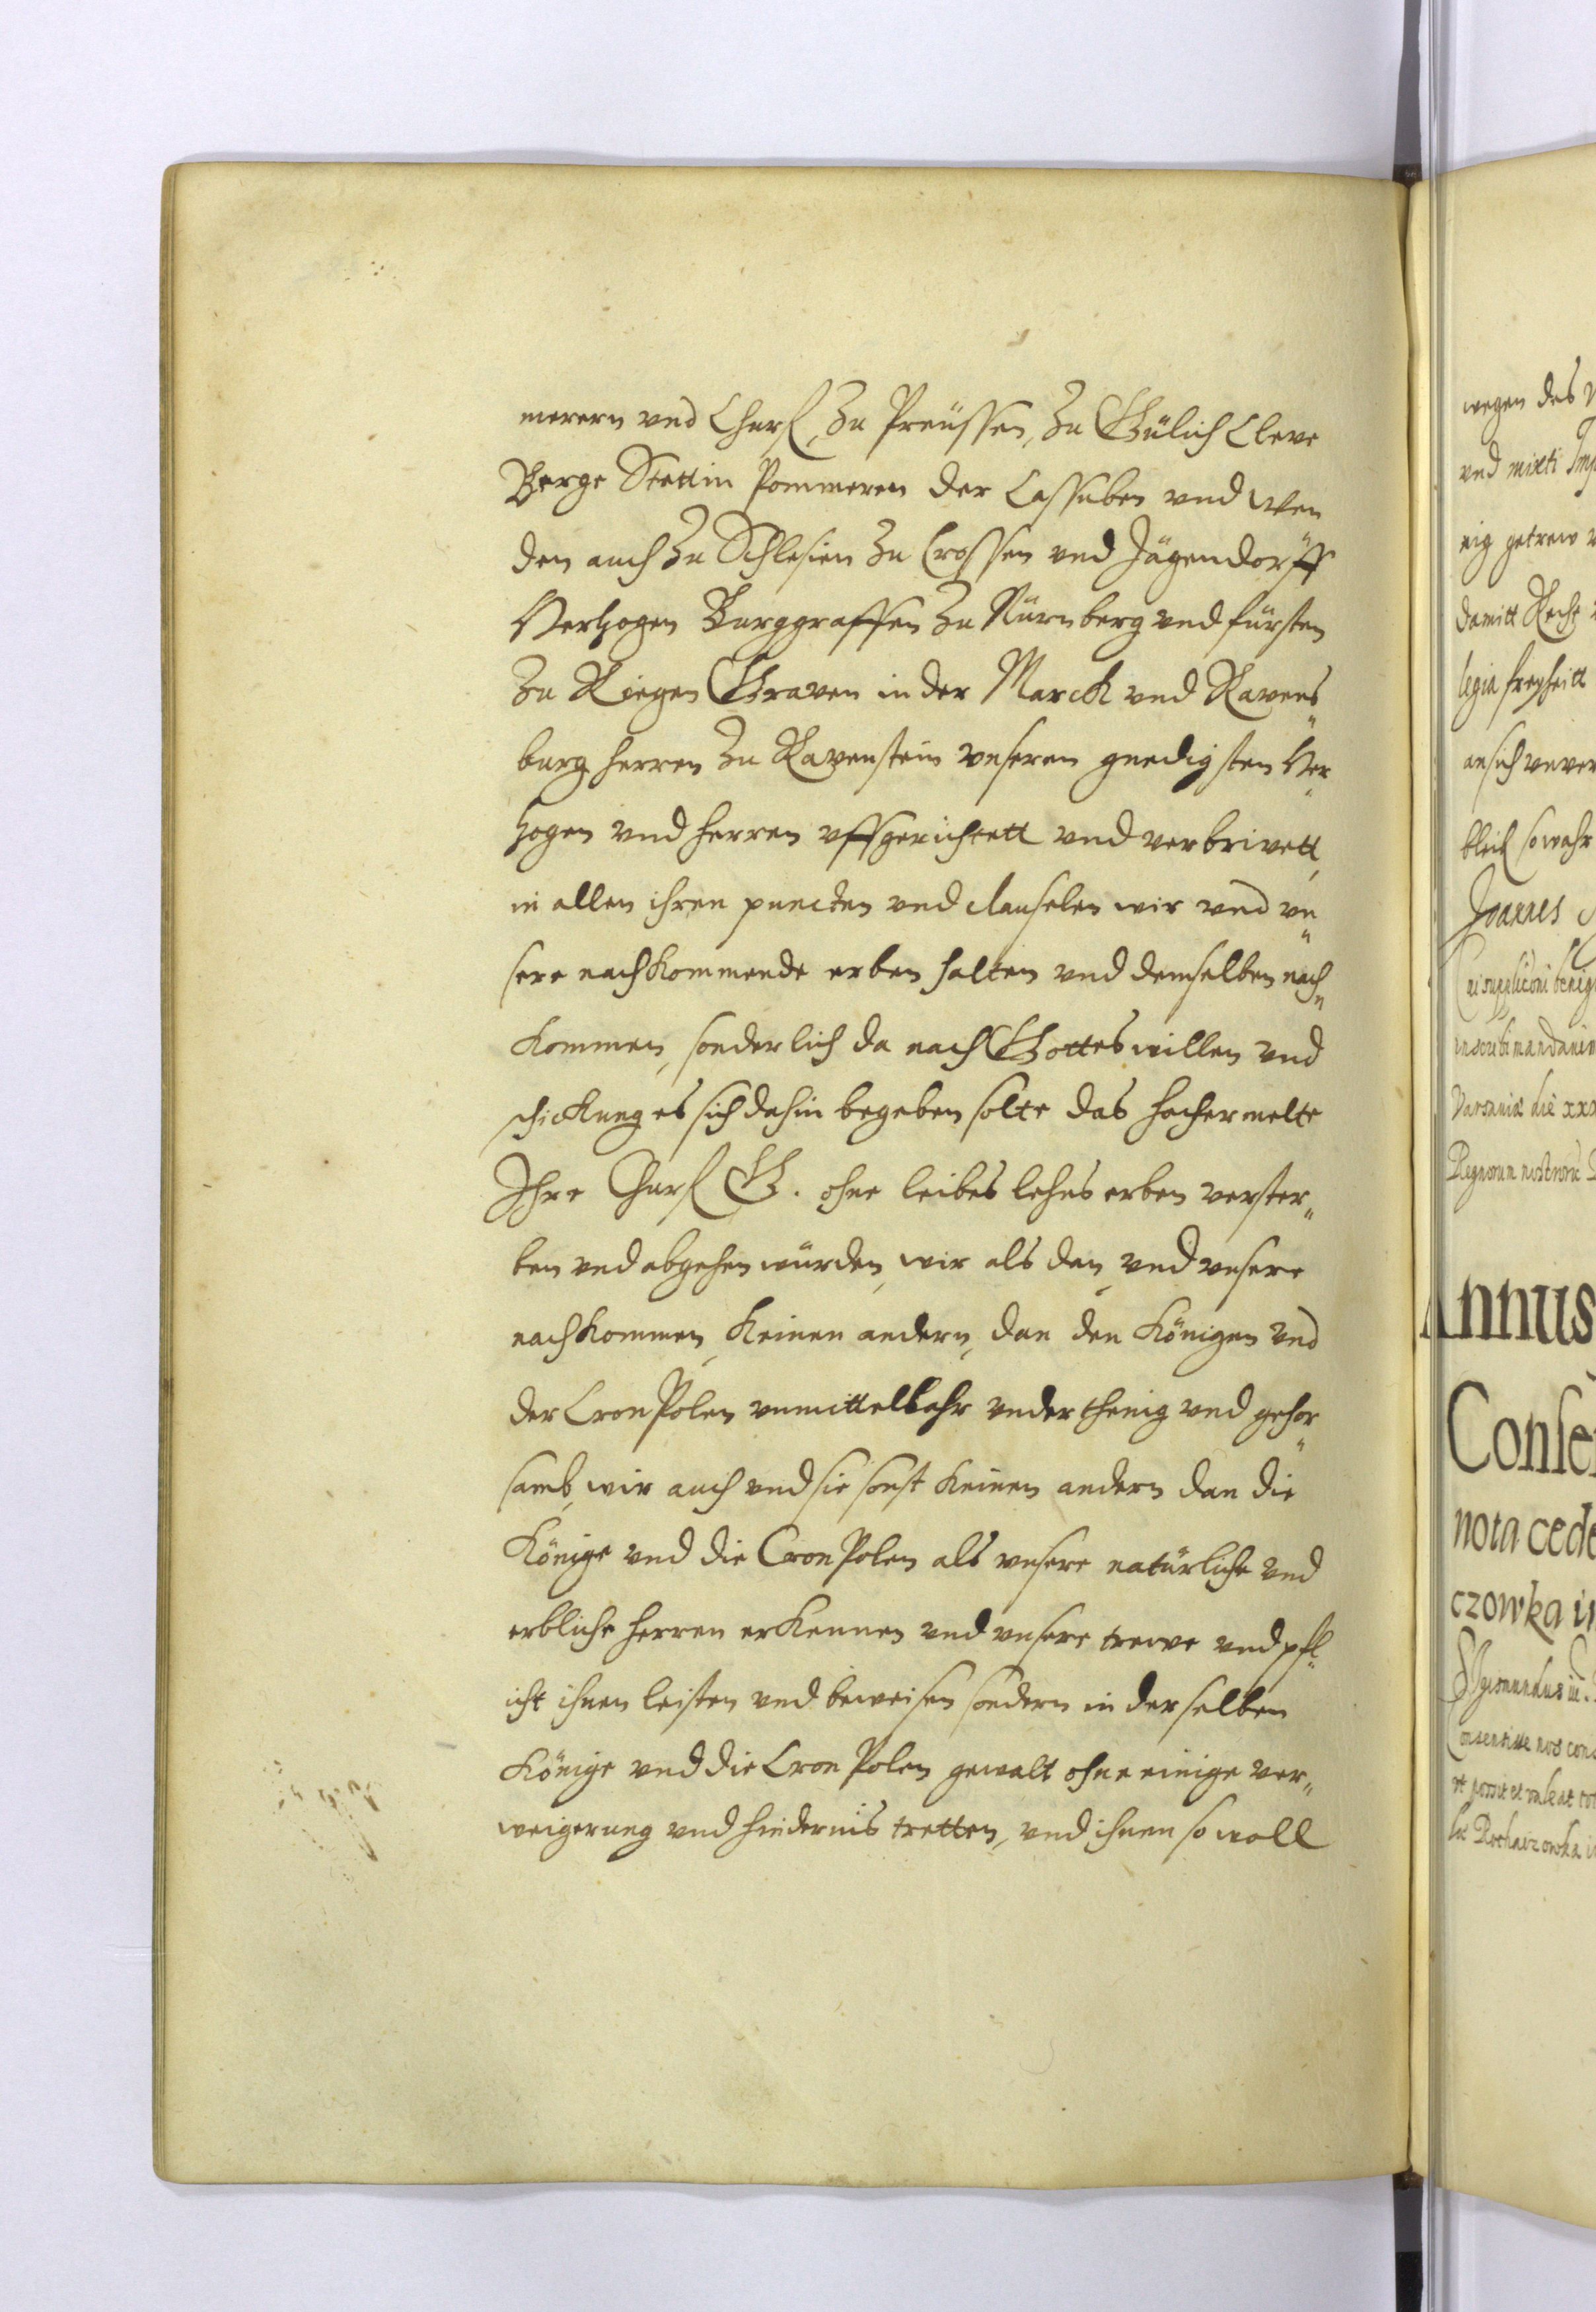 merern vnd Churf, zu Preüssen, zu Gülich Cleve
Berge Stettin Pommeren der Cassuben vnd Wen
den auch zu Schlesien zu Crossen vnd Jägendorff
Hertzogen Burggraffen zu Nürnberg vnd fürsten
zu Riegen Graven in der Marck vnd Ravens
burg herren zu Ravenstein vnseren gnedigsten Her
tzogen vnd herren vffgerichtett vnd verbrivett,
in allen ihren puncten vnd clauselen wir vnd vn
sere nachkommende erben halten vnd demselben nach
kommen, sonderlich da nach Gottes willen vnd
schickung es sich dahin begeben solte das hochermelte
Ihre Churf G. ohne leibes lehns erben verster„
ben vnd abgehen würden, wir als dan, vnd vnsere
nachkommen, keinen andern, dan den Königen vnd
der Cron Polen vnmittelbahr vnderthenig vnd gehor
samb, wir auch vnd sie sonst keinen andern dan die
Könige vnd die Cron Polen als vnsere natürliche vnd
erbliche herren erkennen vnd vnsere trewe vnd pfl„
icht ihnen leisten vnd beweisen sondern in derselben
Könige vnd die Cron Polen gewalt ohne einige ver„
weigerung vnd hindernis tretten, vnd ihnen so woll
wegen des
vnd mixti Imp
nig getrew
damitt Recht
legia freyheitt
an sich vnver
bleib so wahr
Joannes
in suppliconi benig
inscribi mandavim
Varsaviæ die xxx
Regnorum nostrorū
Annus
Conse
nota cede
czowka in
Sigismundus iii.
Consensisse nos
vt possit et valeat